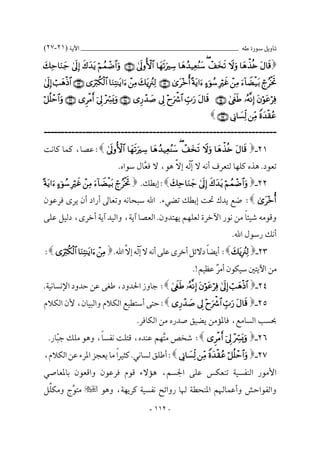 تأويل سورة طه ـــــــــــــــ الآية (٢١-٢٧)
﴿ قَالَ خُذْهَا وَلَا تَخَفْ ۖ سَنُعِيدُهَا سِيرَتَهَا ٱلْأُولَىٰ ۝ وَٱضْمُمْ يَدَكَ إِلَىٰ جَنَاحِكَ
تَخْرُجْ بَيْضَآءَ مِنْ غَيْرِ سُوٓءٍ ءَايَةً أُخْرَىٰ ۝ لِنُرِيَكَ مِنْ ءَايَٰتِنَا ٱلْكُبْرَى ۝ ٱذْهَبْ إِلَىٰ
فِرْعَوْنَ إِنَّهُۥ طَغَىٰ ۝ قَالَ رَبِّ ٱشْرَحْ لِى صَدْرِى ۝ وَيَسِّرْ لِىٓ أَمْرِى ۝ وَٱحْلُلْ
عُقْدَةً مِّن لِّسَانِى ۝ ﴾
٢١ـ ﴿ قَالَ خُذْهَا وَلَا تَخَفْ ۖ سَنُعِيدُهَا سِيرَتَهَا ٱلْأُولَىٰ ﴾: عصا، كما كانت
تعود. هذه كلها لتعرف أنه لا إلٰه إلاّ هو، لا فعّال سواه.
٢٢ـ ﴿ وَٱضْمُمْ يَدَكَ إِلَىٰ جَنَاحِكَ ﴾: إبطك. ﴿ تَخْرُجْ بَيْضَآءَ مِنْ غَيْرِ سُوٓءٍ ءَايَةً
أُخْرَىٰ ﴾: ضع يدك تحت إبطك تضيء. الله سبحانه وتعالى أراد أن يري فرعون
وقومه شيئاً من نور الآخرة لعلهم يهتدون. العصا آية، واليد آية أخرى، دليل على
أنك رسول الله.
٢٣ـ ﴿ لِنُرِيَكَ ﴾: أيضاً دلائل أخرى على أنه لا إلٰه إلاّ الله. ﴿ مِنْ ءَايَٰتِنَا ٱلْكُبْرَى ﴾:
من الآيتين سيكون أمرٌ عظيم!.
٢٤ـ ﴿ ٱذْهَبْ إِلَىٰ فِرْعَوْنَ إِنَّهُۥ طَغَىٰ ﴾: جاوز الحدود، طغى عن حدود الإنسانية.
٢٥ـ ﴿ قَالَ رَبِّ ٱشْرَحْ لِى صَدْرِى ﴾: حتى أستطيع الكلام والبيان، لأن الكلام
بحسب السامع، فالمؤمن يضيق صدره من الكافر.
٢٦ـ ﴿ وَيَسِّرْ لِىٓ أَمْرِى ﴾: شخص متَّهم عنده، قتلت نفساً، وهو ملك جبّار.
٢٧ـ ﴿ وَٱحْلُلْ عُقْدَةً مِّن لِّسَانِى ﴾: أطلق لساني. كثيراً ما يعجز المرء عن الكلام،
الأمور النفسية تنعكس على الجسم، هؤلاء قوم فرعون واقعون بالمعاصي
والفواحش وأعمالهم المنحطة لها روائح نفسية كريهة، وهو ﷺ متوَّج ومكلَّل
- ١١٢ -